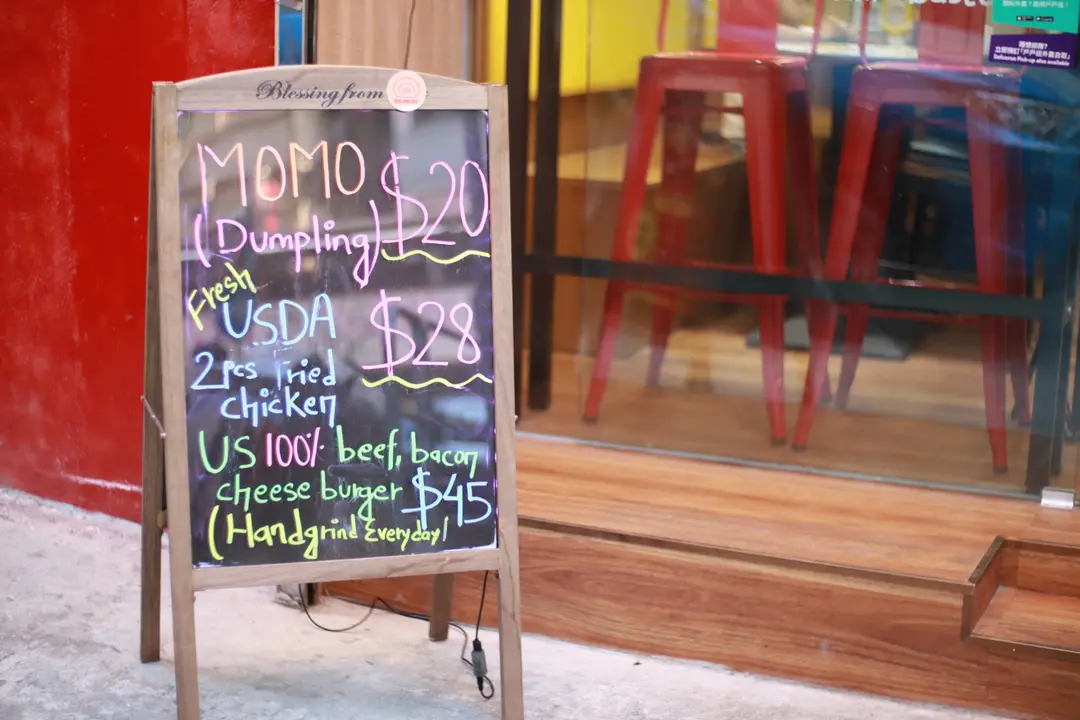 Blessing from
MOMO $20
(Dumpling)
Fresh
USDA $28
2pcs Fried
chicken
US 100% beef, bacon
cheese burger $45
(Handgrind Everyday)
立即預訂「戶戶送外賣自取」
Deliveroo Pick-up also available